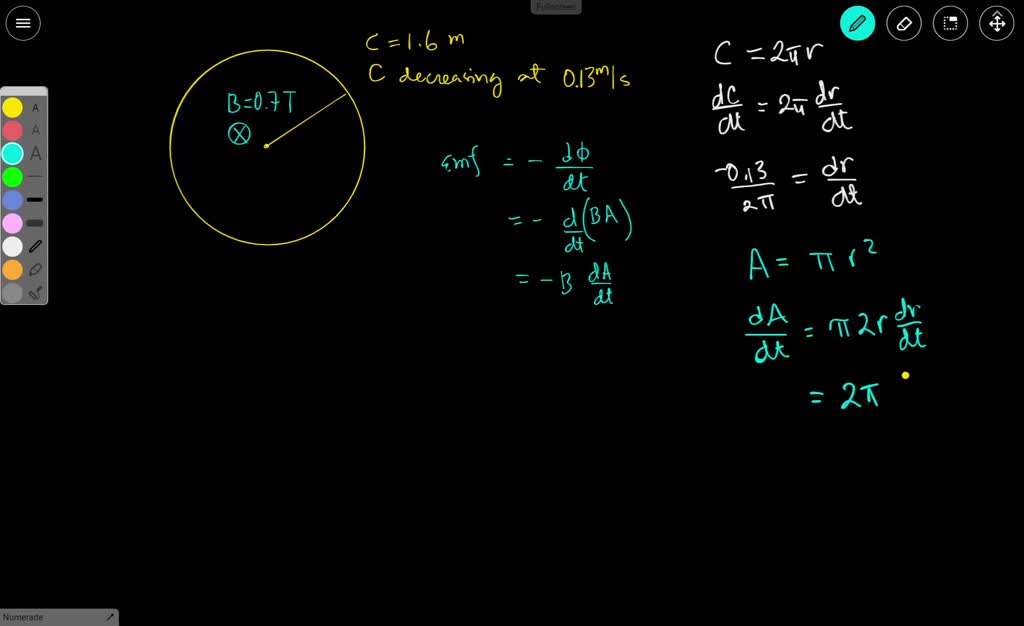 Fullscreen
C = 1.6 m
C decreasing at 0.13 m/s
B=0.7T
⊗
emf = - dΦ/dt
= - d/dt (BA)
= - B dA/dt
C = 2πr
dC/dt = 2π dr/dt
-0.13/2π = dr/dt
A = πr²
dA/dt = π2r dr/dt
= 2π
A
A
A
Numerade